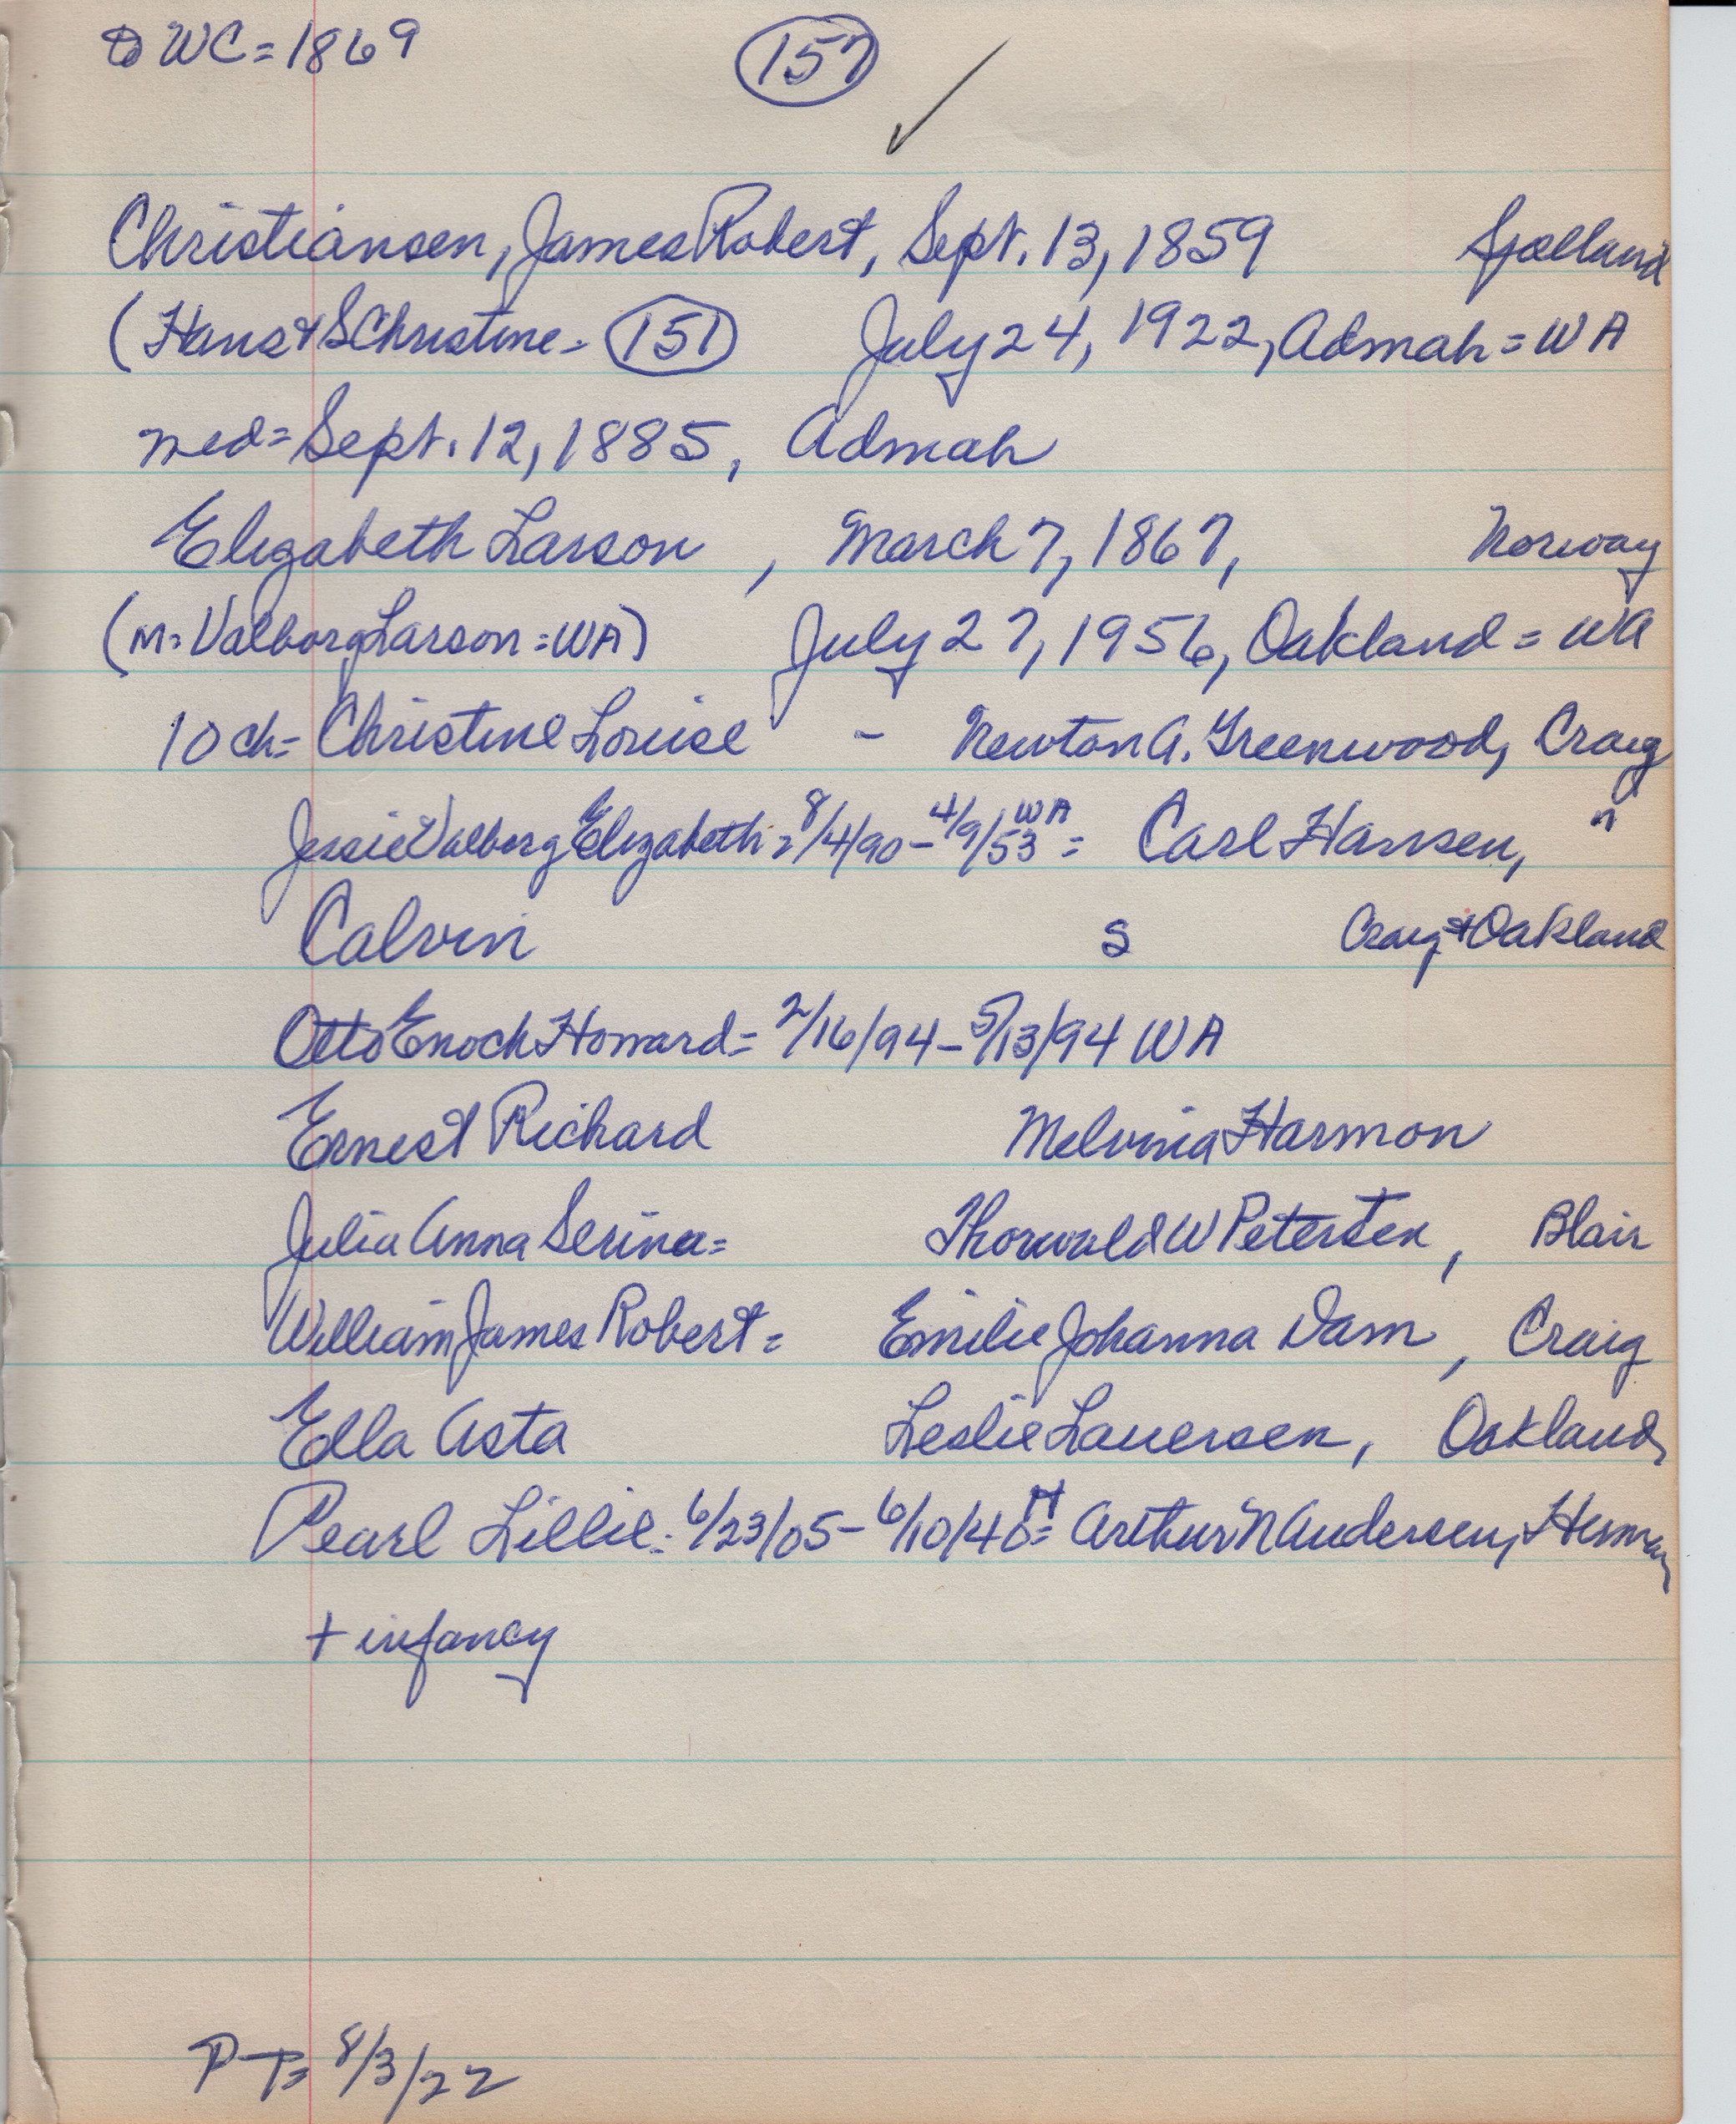 to WC = 1869
157
Christiansen, James Robert, Sept. 13, 1859 Sjælland
(Hans & S Christine - 151 July 24, 1922, Admah = WA
med = Sept. 12, 1885, Admah
Elizabeth Larson , March 7, 1867, Norway
(M. Valborg Larson = WA) July 27, 1956, Oakland = WA
10 ch = Christine Louise - Newton A. Greenwood, Craig
Jessie Valborg Elizabeth = 8/4/90 - 4/9/53 WA = Carl Hansen, "
Calvin S Craig & Oakland
Otto Enoch Howard = 2/16/94 - 5/13/94 WA
Ernest Richard Melvinia Harmon
Julia Anna Serina = Thorwald W Petersen, Blair
William James Robert = Emilie Johanna Dam, Craig
Ella Asta Leslie Lauersen, Oakland
Pearl Lillie : 6/23/05 - 6/10/40 H = Arthur N Andersen, Herman
+ infancy
P-T = 8/3/22